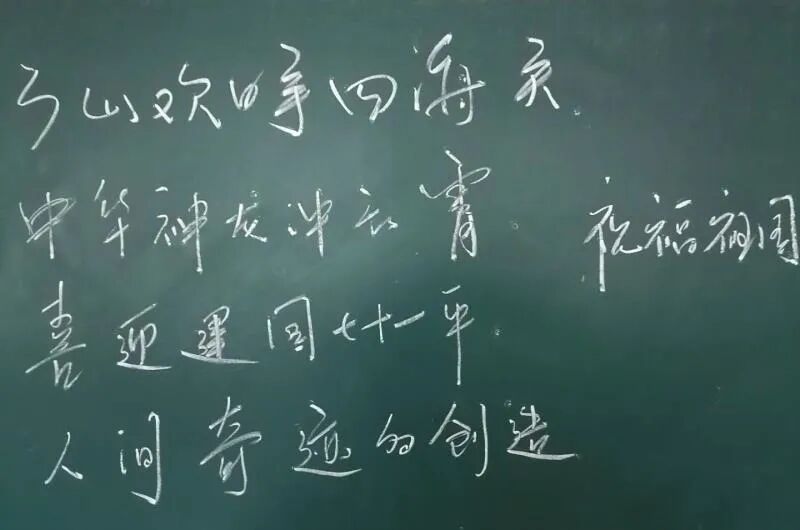 山欢呼四海
中华神龙冲云霄
祝福祖国
喜迎建国七十一年
人间奇迹的创造